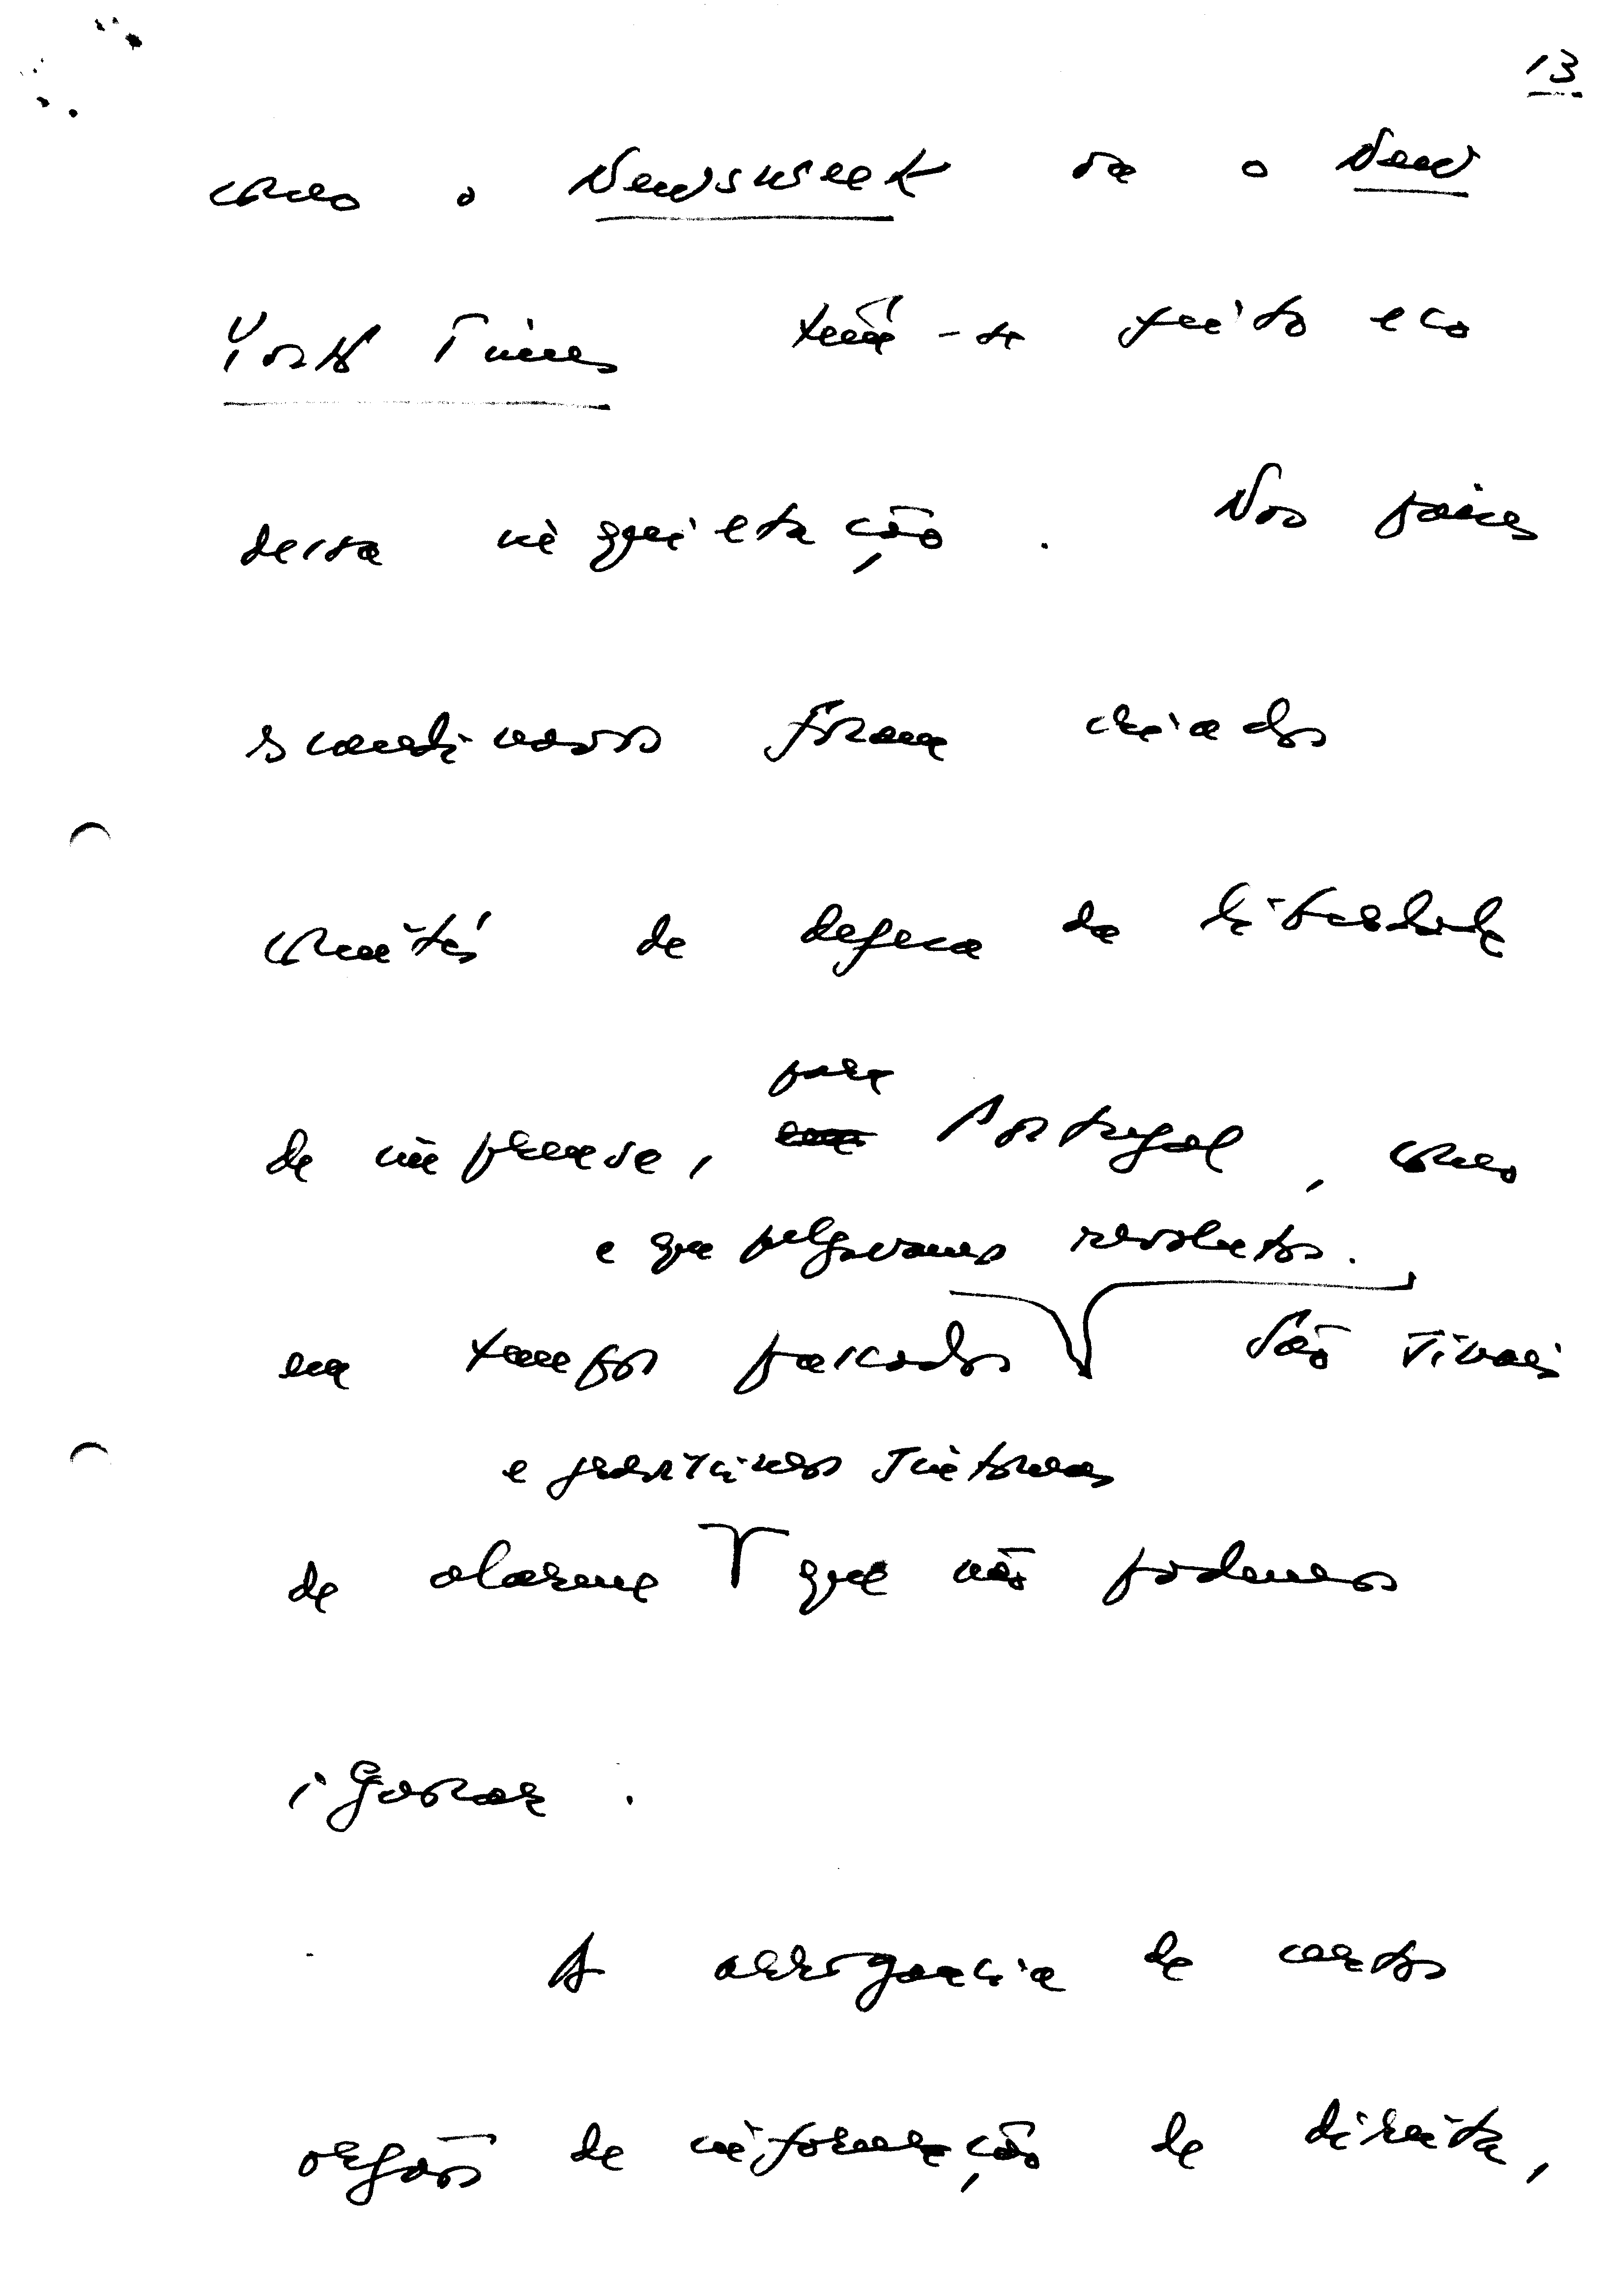 13
como o Newsweek ou o New
York Times têm-se feito eco
dessa inquietação. Nos países
scandinavos foram criados
comités de defesa da liberdade
para
de imprensa, em Portugal, como
e que julgavamos revolutos.
em tempos passados São sinais
e gravíssimos sintomas
de alarme que não podemos
ignorar.
A arrogancia de certos
orgãos de informação de direita,